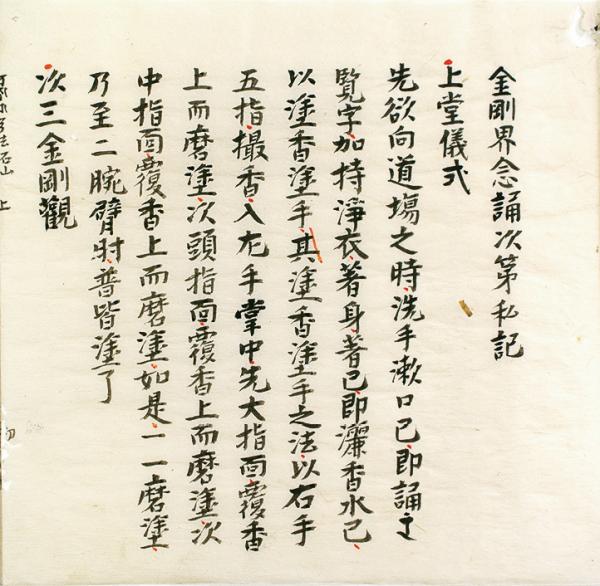 金剛界念誦次第私記
上堂儀式
先欲向道場之時洗手漱口已即誦
覽字加持淨衣著身著已即灑香水已
以塗香塗手其塗香塗手之法以右手
五指撮香入左手掌中先大指面覆香
上而磨塗次頭指面覆香上而磨塗次
中指面覆香上而磨塗如是一一磨塗
乃至二腕臂肘普皆塗了
次三金剛觀
上